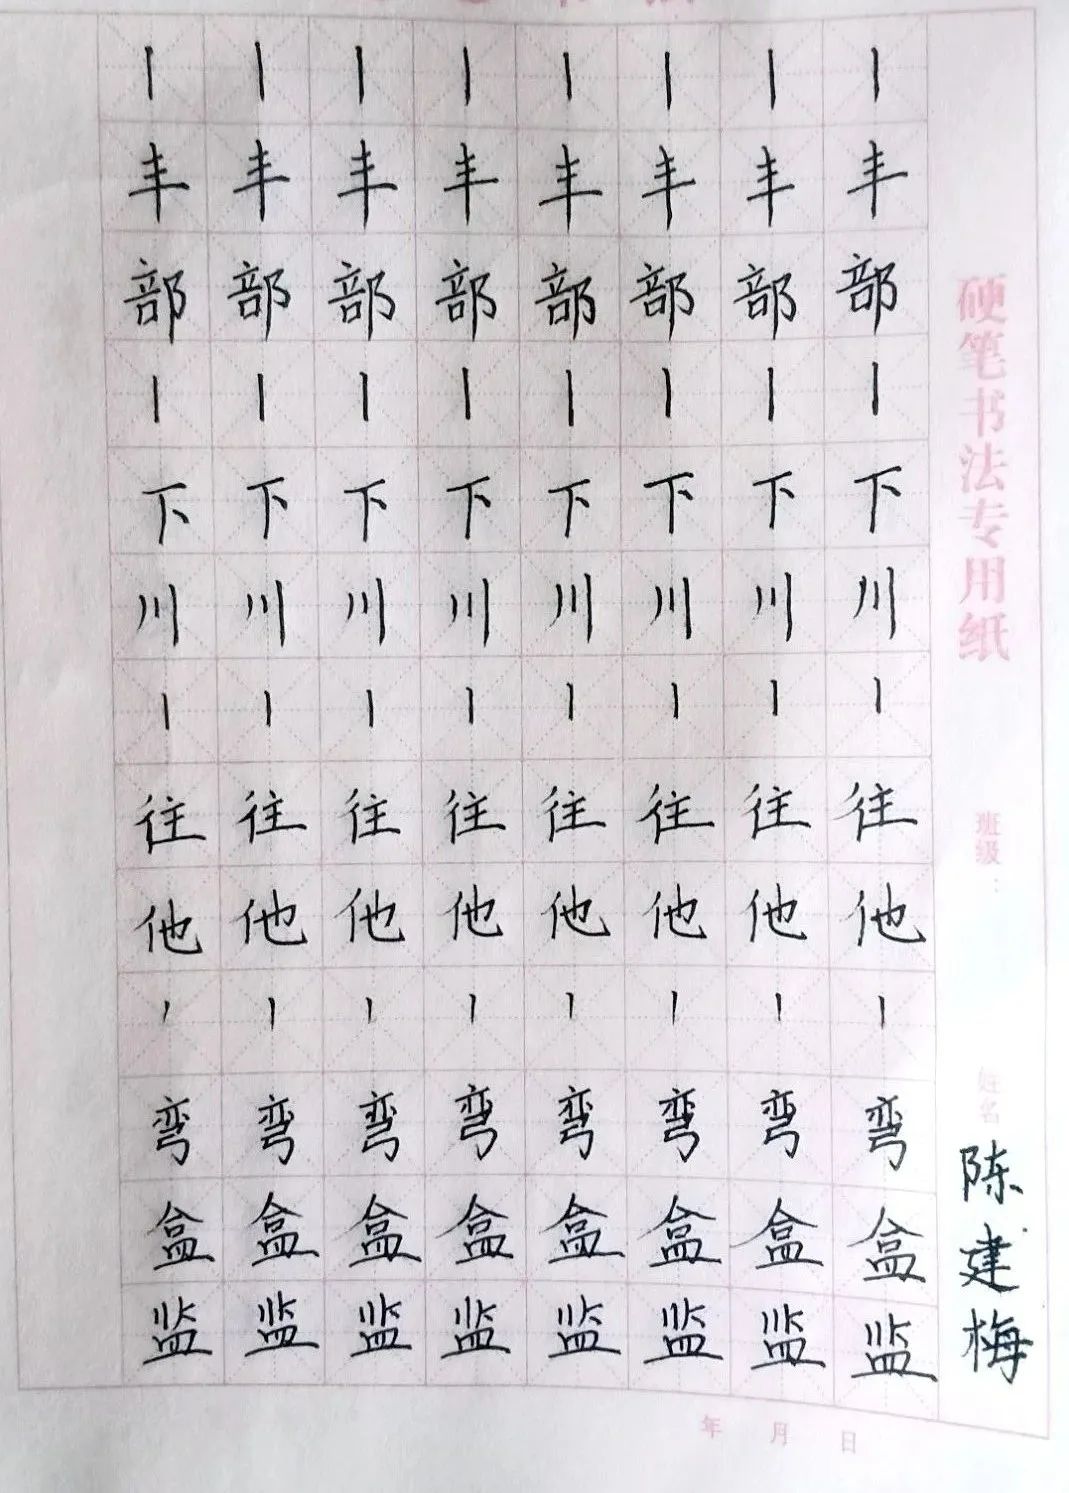 丨丨丨丨丨丨丨丨
丰丰丰丰丰丰丰丰
部部部部部部部部
丨丨丨丨丨丨丨丨
下下下下下下下下
川川川川川川川川
丨丨丨丨丨丨丨丨
往往往往往往往往
他他他他他他他他
丨丨丨丨丨丨丨丨
弯弯弯弯弯弯弯弯
盒盒盒盒盒盒盒盒
监监监监监监监监
硬笔书法专用纸
班级：
姓名
陈建梅
年 月 日